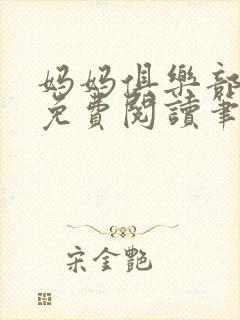 妈妈俱樂部
免費閱讀筆
宋金艷